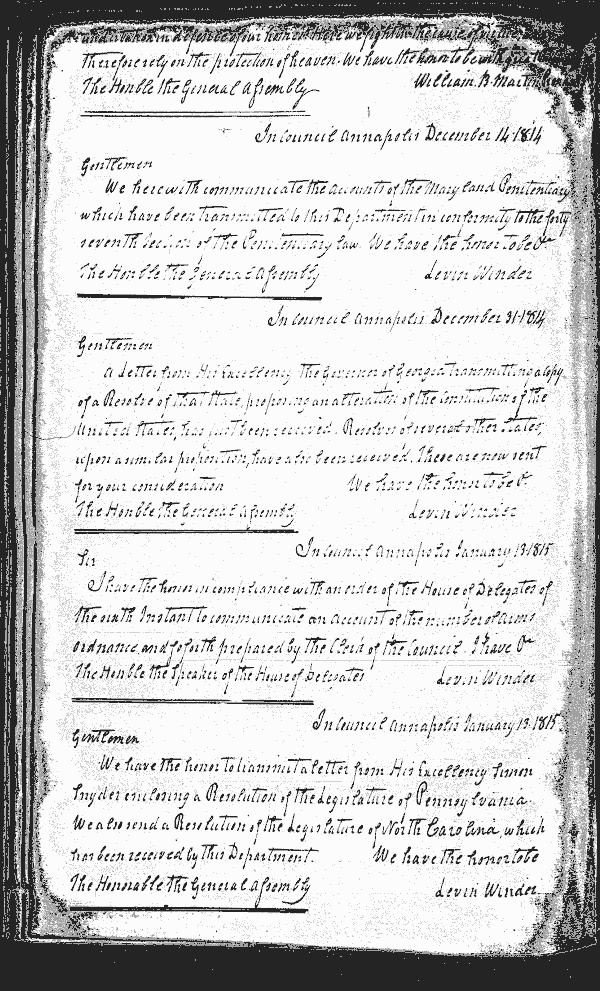 and awaken in defence of our homes. Here we fight in the cause of
therefore rely on the protection of heaven. We have the honor to be with
The Honble the General Assembly William B Martin
In Council Annapolis December 14 1814
Gentlemen
We herewith communicate the accounts of the Maryland Penitentiary
which have been transmitted to this Department in conformity to the forty
seventh section of the Penitentiary law. We have the honor to be &c
The Honble the General Assembly Levin Winder
In Council Annapolis December 31 1814
Gentlemen
A Letter from His Excellency The Governor of Georgia transmitting a copy
of a Resolve of that State, proposing an alteration of the Constitution of the
United States, has just been received. Resolves of several other States,
upon a similar proposition, have also been received. These are now sent
for your consideration We have the honor to be &c
The Honble the General Assembly Levin Winder
In Council Annapolis January 13 1815
Sir
I have the honor in compliance with an order of the House of Delegates of
the sixth Instant to communicate an account of the number of arms
ordnance, and so forth prepared by the Clerk of the Council. I have &c
The Honble the Speaker of the House of Delegates Levin Winder
In Council Annapolis January 13 1815
Gentlemen
We have the honor to transmit a letter from His Excellency Simon
Snyder enclosing a Resolution of the Legislature of Pennsylvania
We also send a Resolution of the Legislature of North Carolina, which
has been received by this Department. We have the honor to be
The Honorable the General Assembly Levin Winder